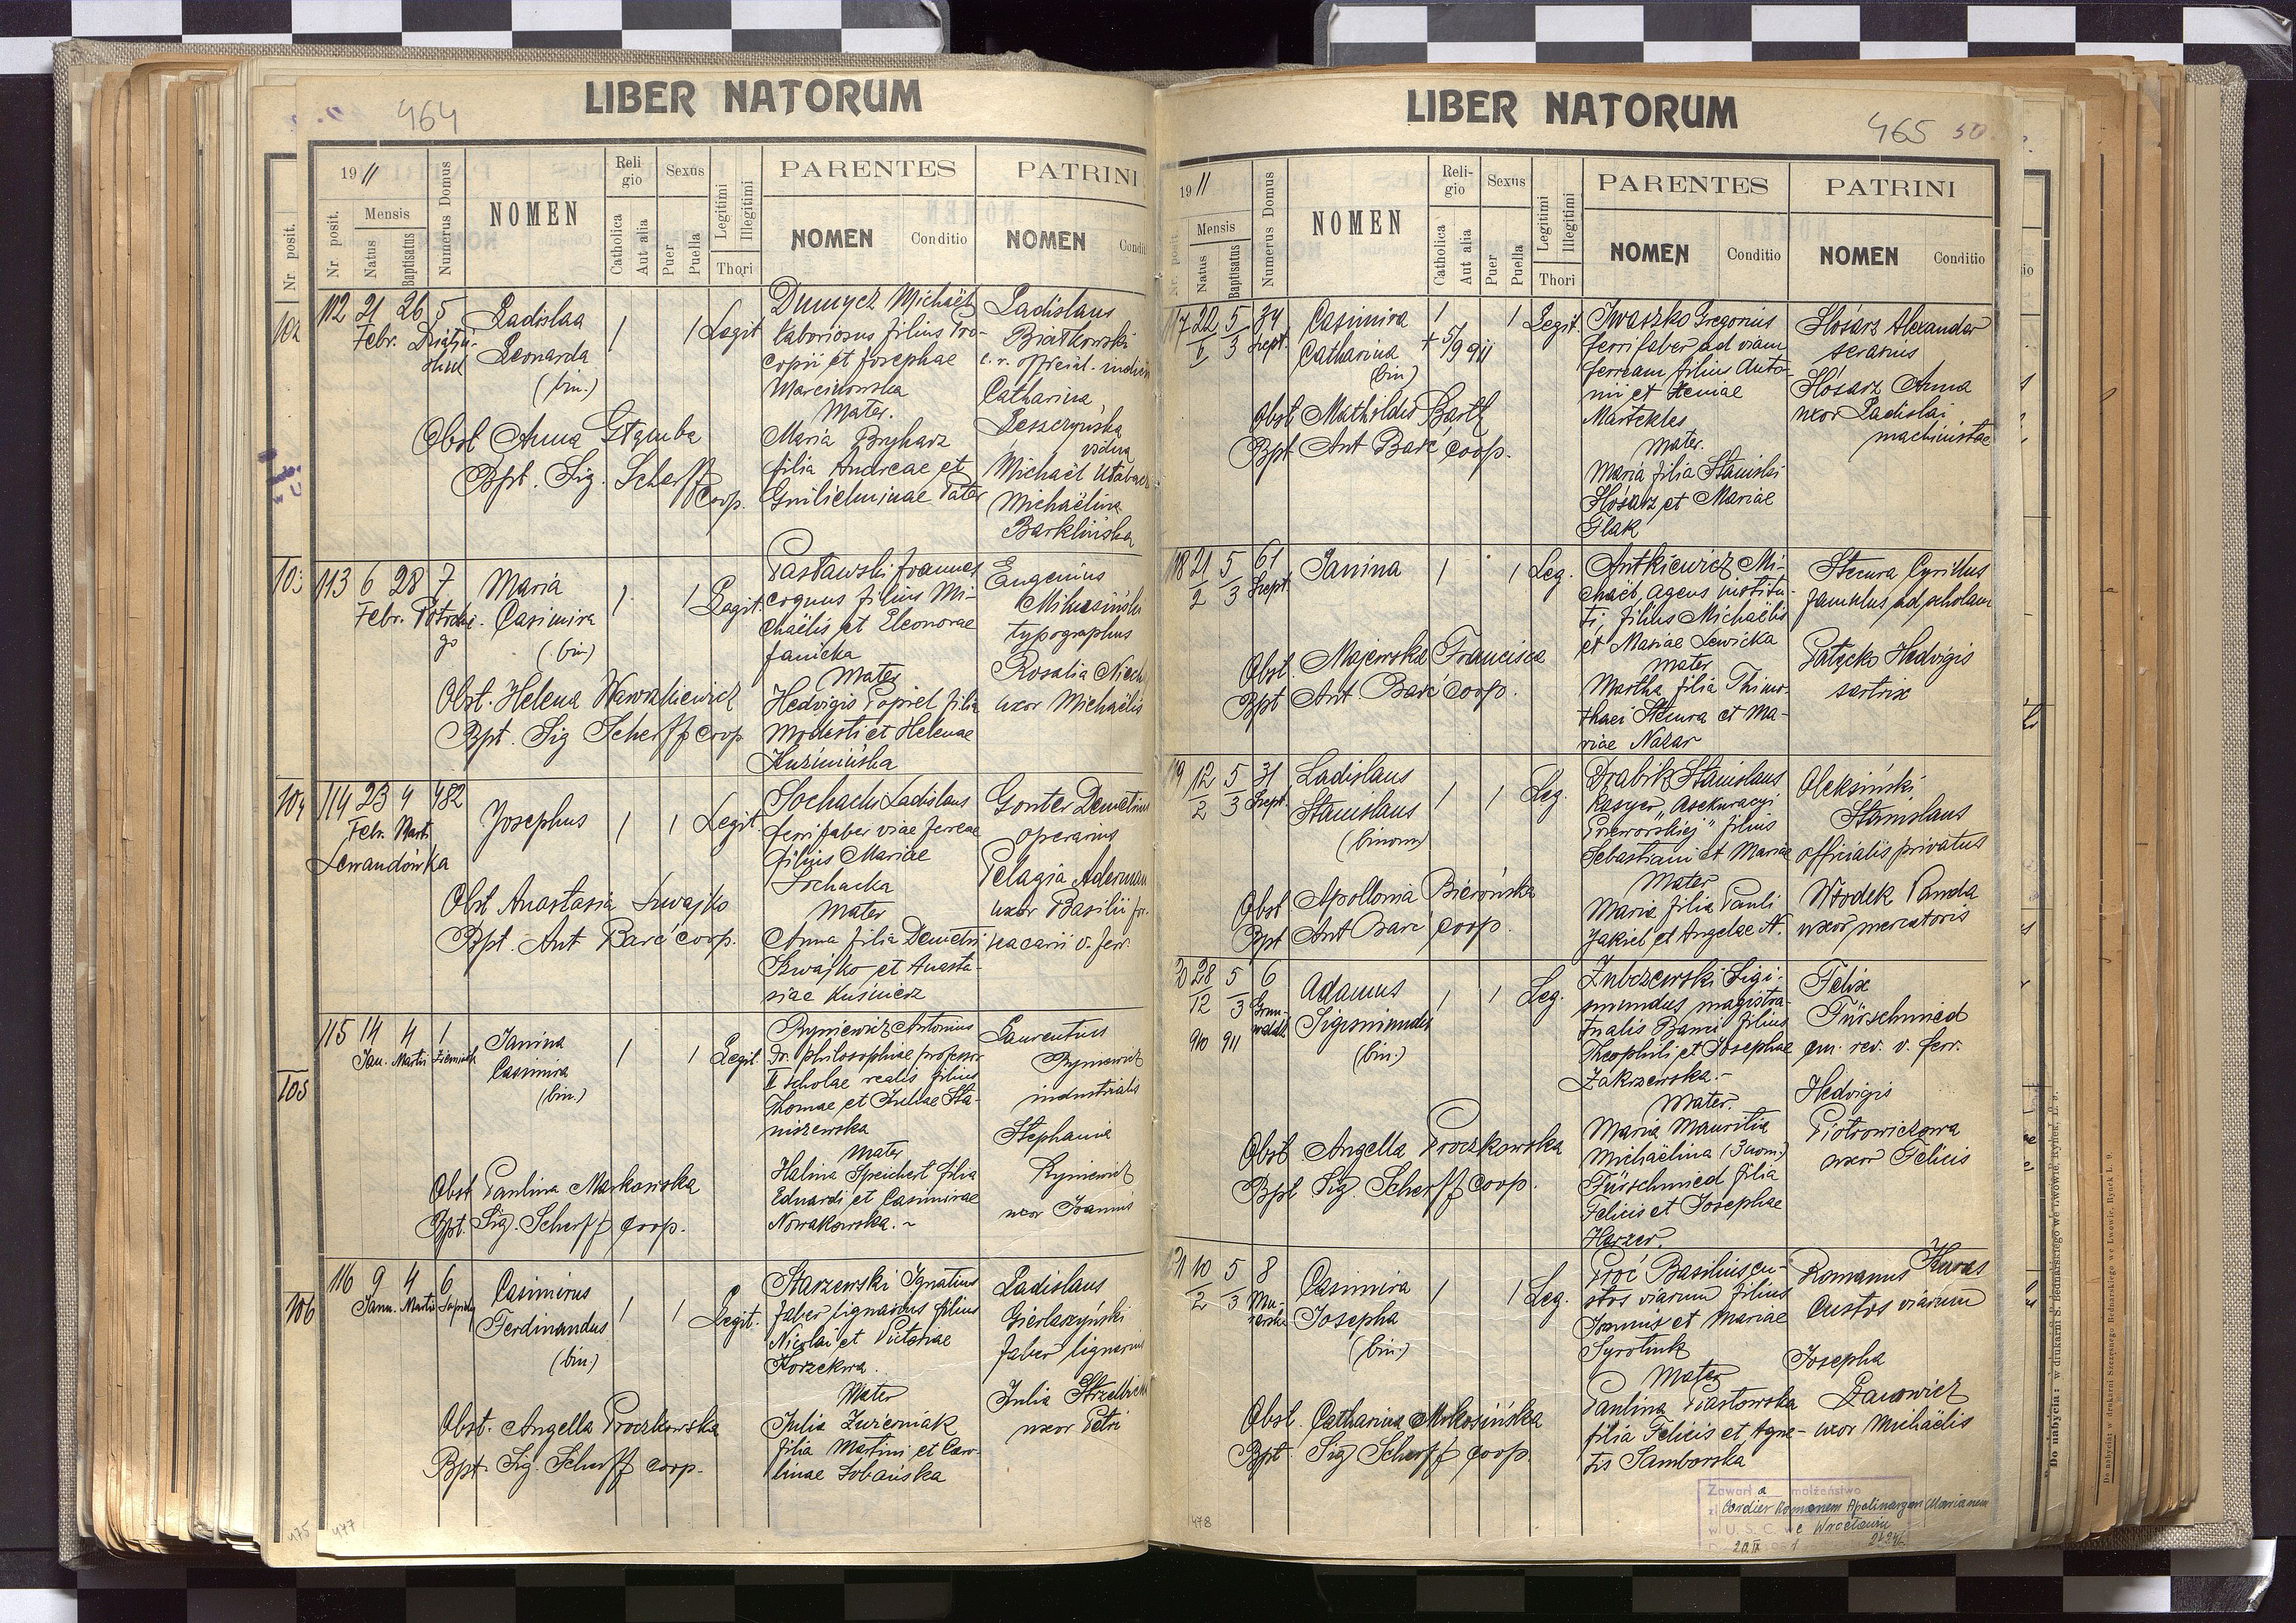 LIBER NATORUM
464
1911
Nr. posit.
Mensis
Natus
Baptisatus
Numerus Domus
NOMEN
Religio
Catholica
Aut alia
Sexus
Puer
Puella
Legitimi
Illegitimi
Thori
PARENTES
NOMEN Conditio
PATRINI
NOMEN
112 21 26 5
Febr.
Ladislaa
Leonarda
(bin.)
1 1 Legit
Dumycz Michaël
laboriosus filius Pro-
copii et Josephae
Marcinowska
Mater.
Maria Bryharz
filia Andreae et
Ladislaus
Białkowski
Catharina
Leszczyńska
vidua
Michaël
Michaëlina
Barklińska
Obst Anna
Bpt. Sig. Scherff
Coop.
113 6 28 7
Febr.
Maria
Casimira
(bin)
1 1 Legit.
Pasławski Joannes
coquus filius Mi-
chaëlis et Eleonorae
Janicka
Mater
Hedvigis Popiel filia
Modesti et Helenae
Kuźmińska
Eugenius
typographus
Rosalia
uxor Michaëlis
Obst. Helena Wawrzkiewicz
Bpt. Sig Scherff coop
114 23 4 482
Febr. Mart.
Lewandówka
Josephus
1 1 Legit.
Sochacki Ladislaus
ferrifaber viae ferreae
filius Mariae
Sochacka
Mater
Anna filia Demetri
Szwajko et Anasta-
siae Kuśnierz
Gonter Demetrius
operarius
Pelagia
uxor Basilii
v. ferr.
Obst Anastasia Szwajko
Bpt. Ant Barć coop.
115 14 4 1
Jan. Martii
Janina
Casimira
(bin.)
1 1 Legit
Ryniewicz Antonius
Dr. philosophiae professor
II scholae realis filius
Thomae et Juliae Sta-
niszewska
Mater
Halina Speichert filia
Eduardi et Casimirae
Nowakowska.
Laurentius
Ryniewicz
industrialis
Stephania
Ryniewicz
uxor Joannis
Obst Paulina Markowska
Bpt. Sig. Scherff coop.
116 9 4 6
Janu. Martii Sapiehy
Casimirus
Ferdinandus
(bin.)
1 1 Legit.
Starzewski Ignatius
faber lignarius filius
Nicolai et Victoriae
Korzekwa.
Mater
Julia Zwierniak
filia Martini et Caro-
linae Łobańska
Ladislaus
Gierlaszyński
faber lignarius
Julia
uxor Petri
Obst. Angella Proczkowska
Bpt. Sig. Scherff coop.
477
475
102
103
104
105
106
LIBER NATORUM
465
50
1911
Nr. posit.
Mensis
Natus
Baptisatus
Numerus Domus
NOMEN
Religio
Catholica
Aut alia
Sexus
Puer
Puella
Legitimi
Illegitimi
Thori
PARENTES
NOMEN Conditio
PATRINI
NOMEN Conditio
117 22 5 34
3 Szept.
Casimira
Catharina
(bin)
1 1 Legit.
+ 5/9 911
Iwaszko Gregorius
ferrifaber ad viam
ferream filius Anto-
nii et Xeniae
Mater.
Maria filia Stanislai
Ślósarz et Mariae
Flak
Ślósarz Alexander
serarius
Ślósarz Anna
uxor Ladislai
machinistae
Obst Mathilda Bartl
Bpt Ant Barć coop.
118 21 5 61
2 3 Szept.
Janina
1 1 Leg.
Antkiewicz Mi-
chaël, agens institu-
ti, filius Michaëlis
et Mariae Lewicka
Mater
Martha filia Thimo-
thaei Stcura et Ma-
riae Nazar
Stcura Cyrillus
famulus ad scholam
Hedvigis
sartrix
Obst. Majewska Francisca
Bpt Ant. Barć coop.
119 12 5 31
2 3 Szept.
Ladislaus
Stanislaus
(binom)
1 1 Leg.
Drabik Stanislaus
Kasyer "Asekuracyi
Przeworskiej" filius
Sebastiani et Mariae
Mater
Maria filia Pauli
Jakiel et Angelae N.
Oleksiński
Stanislaus
officialis privatus
Włodek Vanda
uxor mercatoris
Obst Apollonia Bierońska
Bpt Ant Barć coop.
120 28 5 6
12 3
910 911
Adamus
Sigismundus
(bin.)
1 1 Leg.
Zubrzewski Sigi-
smundus magistra-
tualis filius
Theophili et Josephae
Zakrzewska.-
Mater.
Maria Mauritia
Michaëlina (3nom.)
Fürschmied filia
Felicis et Josephae
Herzer.
Felix
Fürschmied
em. rev. v. ferr.
Hedvigis
Piotrowiczowa
uxor Felicis
Obst Angella Proczkowska
Bpt Sig Scherff coop.
121 10 5 8
2 3
Casimira
Josepha
(bin.)
1 1 Leg.
Proć Basilius cu-
stos viarum filius
Joannis et Mariae
Syrotiuk
Mater
Paulina Piastowska
filia Felicis et Agne-
tis Samborska
Romanus Kuras
Custos viarum
Josepha
Panowicz
uxor Michaëlis
Obst. Catharina Mokosińska
Bpt. Sig Scherff coop.
478
Zawarł a małżeństwo
z Cordier Romanem Apolinarym Marianem
w U. S. C. we Wrocławiu